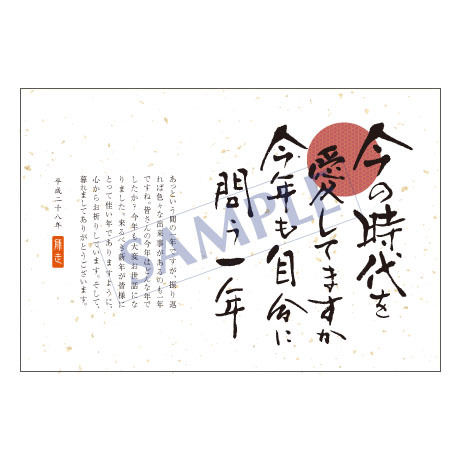 今の時代を
愛してますか
今年も自分に
問う一年
あっという間の一年ですが、振り返
れば色々な出来事があるのも一年
ですね。皆さんの今年はどんな年で
したか？今年も大変お世話にな
りました。来るべき新年が皆様に
とって佳い年でありますように、
心からお祈りしています。そして、
暮れましてありがとうございます。
平成二十八年
師走
SAMPLE